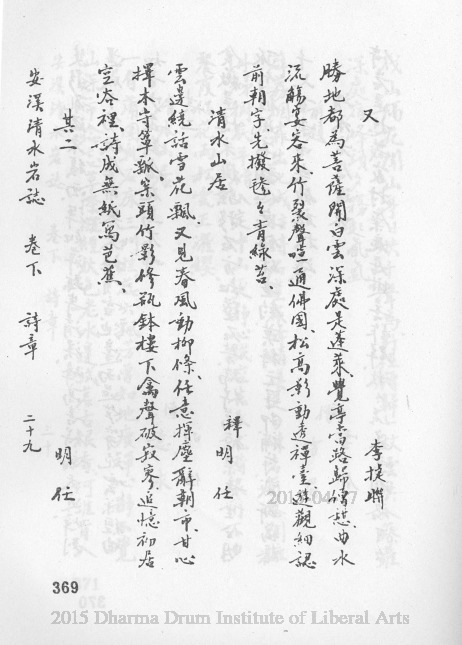 又
李授聯
勝地都為菩薩開、白雲深處是蓬萊、覺亭當路歸僧憩、曲水
流觴宴客來、竹裂聲喧通佛國、松高影動透禪臺、遊觀細認
前朝字、先撥毿毿青綠苔、
清水山居
釋明任
雲邊繞話雪花飄、又見春風動柳條、任意揮塵辭朝市、甘心
擇木守簞瓢、案頭竹影修瓶鉢、樓下禽聲破寂寥、追憶初居
空谷裡、詩成無紙寫芭蕉、
其二
明任
安溪清水岩誌 卷下 詩章 二十九
369
2015-04-07
2015 Dharma Drum Institute of Liberal Arts